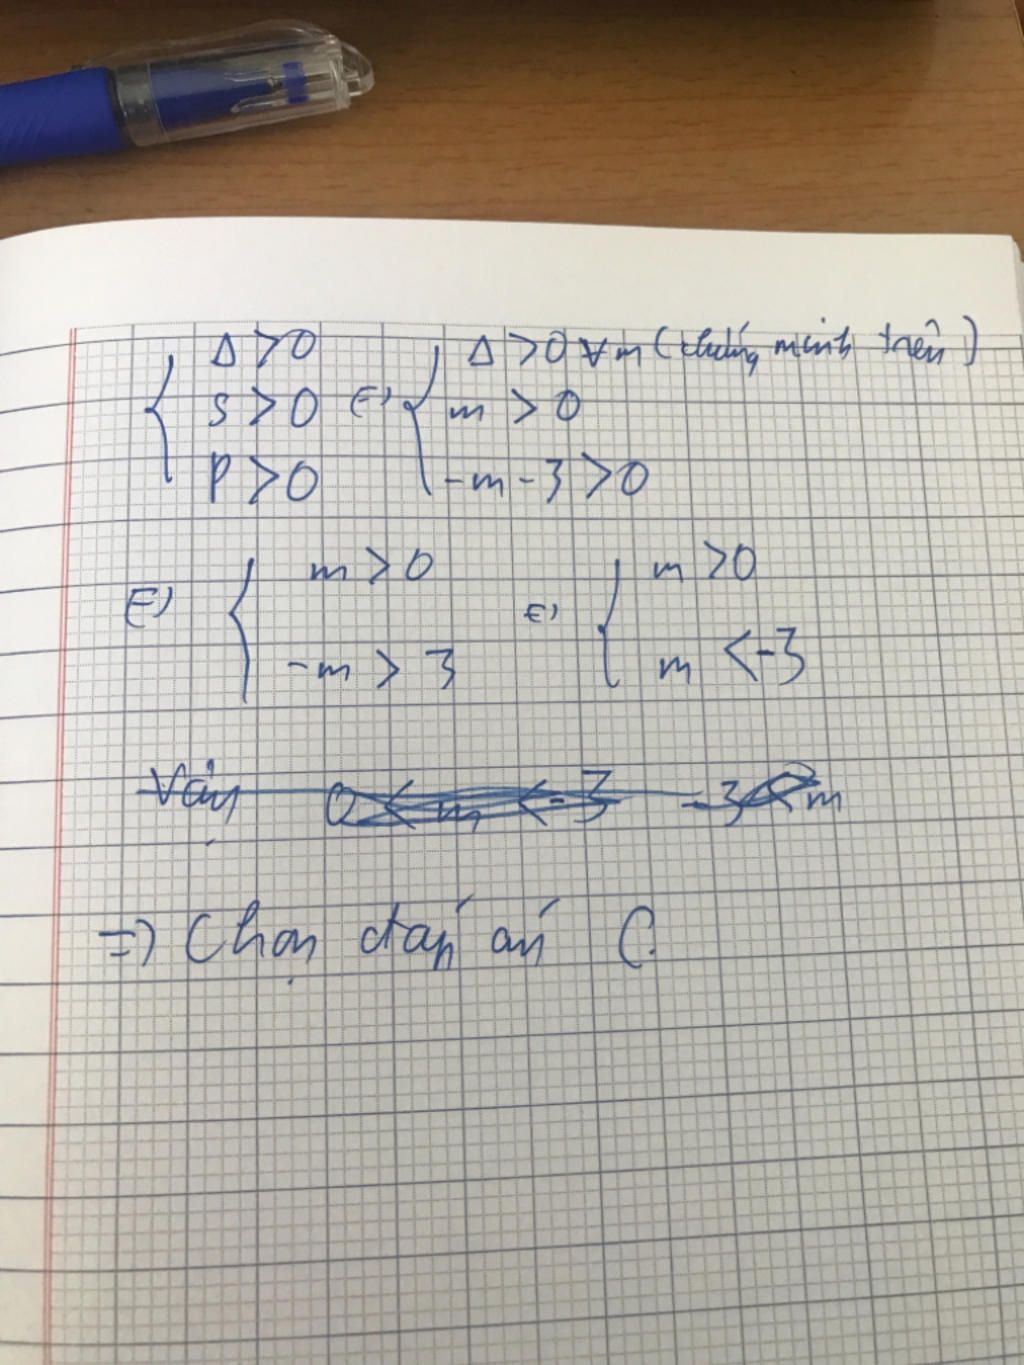 Δ > 0 Δ > 0 ∀m (chứng minh trên)
S > 0 <=> m > 0
P > 0 -m - 3 > 0
<=> m > 0 <=> m > 0
-m > 3 m < -3
Vậy 0 < m < -3 -3 < m
=> Chọn đáp án C.